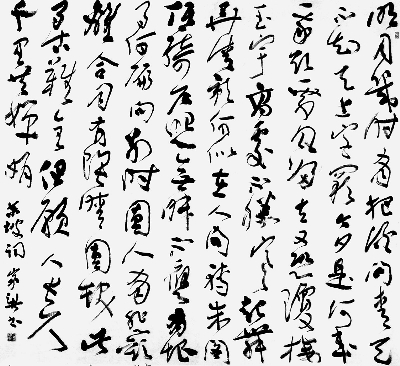 明月幾時有把酒問青天
不知天上宮闕今夕是何年
我欲乘風歸去又恐瓊樓
玉宇高處不勝寒起舞
弄清影何似在人間轉朱閣
低綺戶照無眠不應有恨
向別時圓人有悲歡
離合月有陰晴圓缺此
事古難全但願人長久
千里共嬋娟
東坡詞